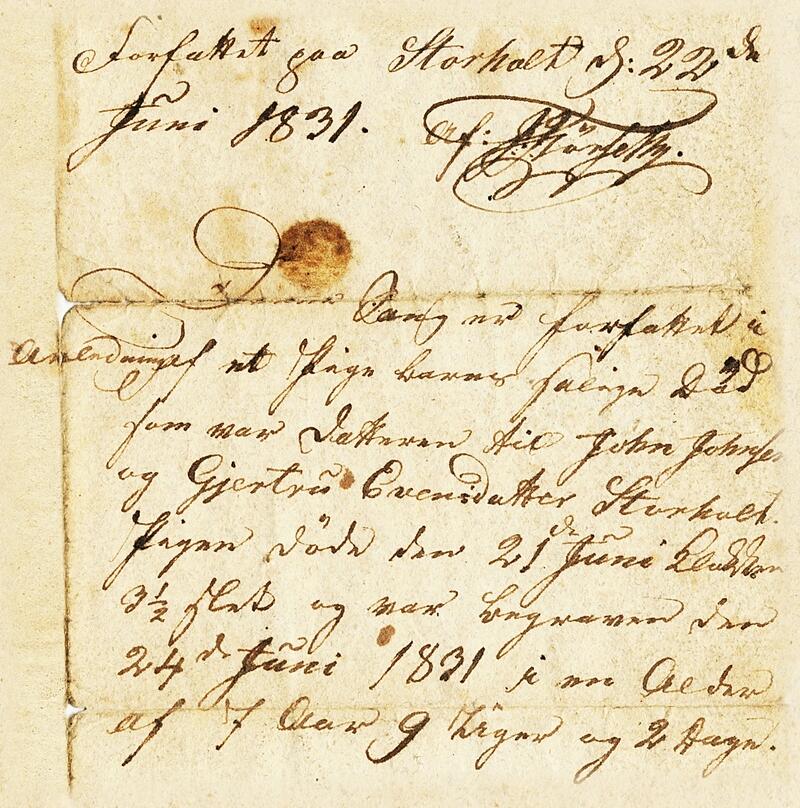 Forfattet paa Storholt d: 22de
Juni 1831. af:
Denne Sang er forfattet i
Anledning af et Pige barns salige Död
som var Datteren til John Johnsen
og Gjertru Evensdatter Storholt.
Pigen döde den 21de Juni Klokken
3½ slet og var begraven den
24de Juni 1831 i en Alder
af 7 Aar 9 Uger og 2 Dage.